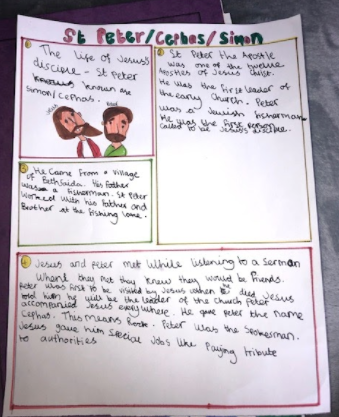 St Peter/Cephas/Simon
The life of Jesus's
disciple - St Peter
known as
Simon/Cephas.
St Peter the Apostle
was one of the twelve
Apostles of Jesus Christ.
He was the first leader of
the early Church. Peter
was a Jewish fisherman
He was the first person
called to be Jesus's disciple.
He came from a village
of Bethsaida. His Father
was a fisherman. St Peter
worked with his Father and
Brother at the Fishing
Jesus and Peter met while listening to a Sermon
When they met they knew they would be friends.
Peter was first to be visited by Jesus when he died Jesus
told him he will be the leader of the church Peter
accompanied Jesus everywhere. He gave peter the name
Cephas. This means Rock. Peter was the Spokesman.
Jesus gave him special jobs like Paying tribute
to authorities